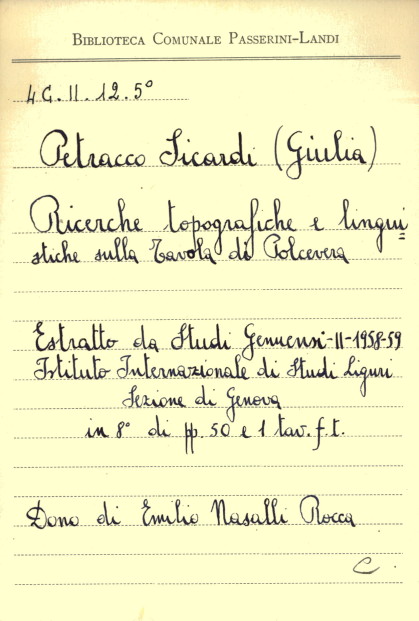 BIBLIOTECA COMUNALE PASSERINI-LANDI
4 G. II. 12. 5°
Petracco Sicardi (Giulia)
Ricerche topografiche e lingui=
stiche sulla Tavola di Polcevera
Estratto da Studi Genuensi-II-1958-59
Istituto Internazionale di Studi Liguri
Sezione di Genova
in 8° di pp. 50 e 1 tav. f. t.
Dono di Emilio Nasalli Rocca
C.